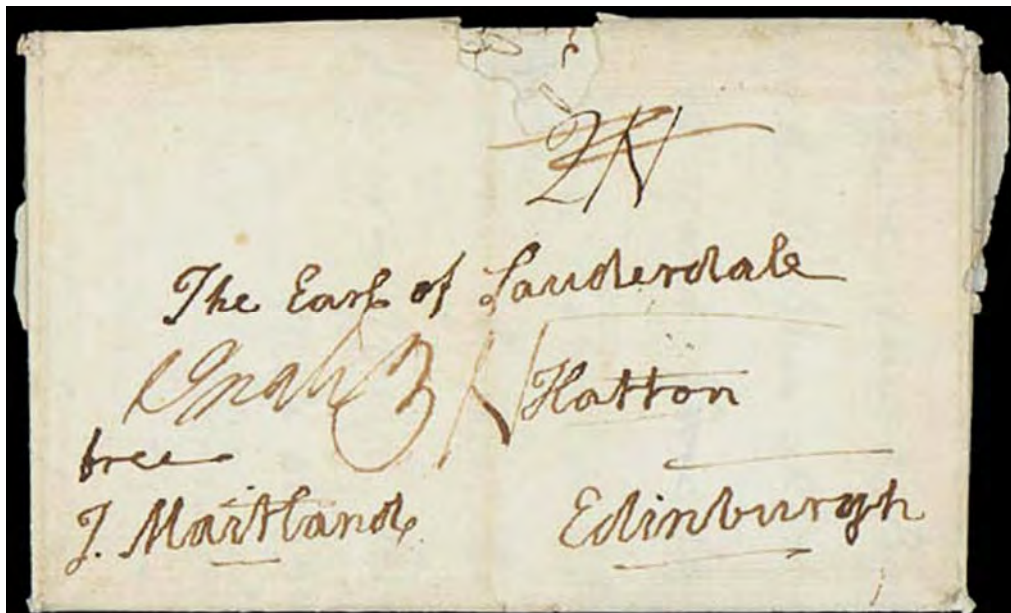 2N
The Earl of Lauderdale
3N Hatton
free
J. Maitland
Edinburgh